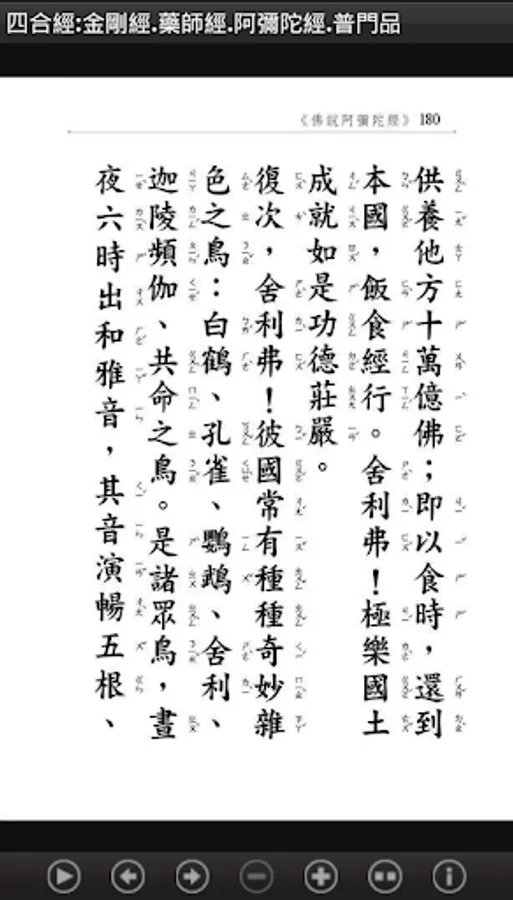 四合經:金剛經.藥師經.阿彌陀經.普門品
《佛說阿彌陀經》 180
供養他方十萬億佛；即以食時，還到
本國，飯食經行。舍利弗！極樂國土
成就如是功德莊嚴。
復次，舍利弗！彼國常有種種奇妙雜
色之鳥：白鶴、孔雀、鸚鵡、舍利、
迦陵頻伽、共命之鳥。是諸眾鳥，晝
夜六時出和雅音，其音演暢五根、